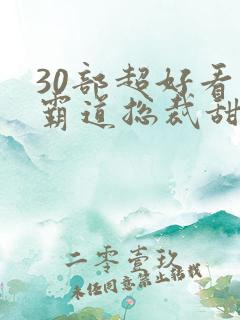 30部超好看
霸道总裁甜
二零壹玖
未经同意禁止转载